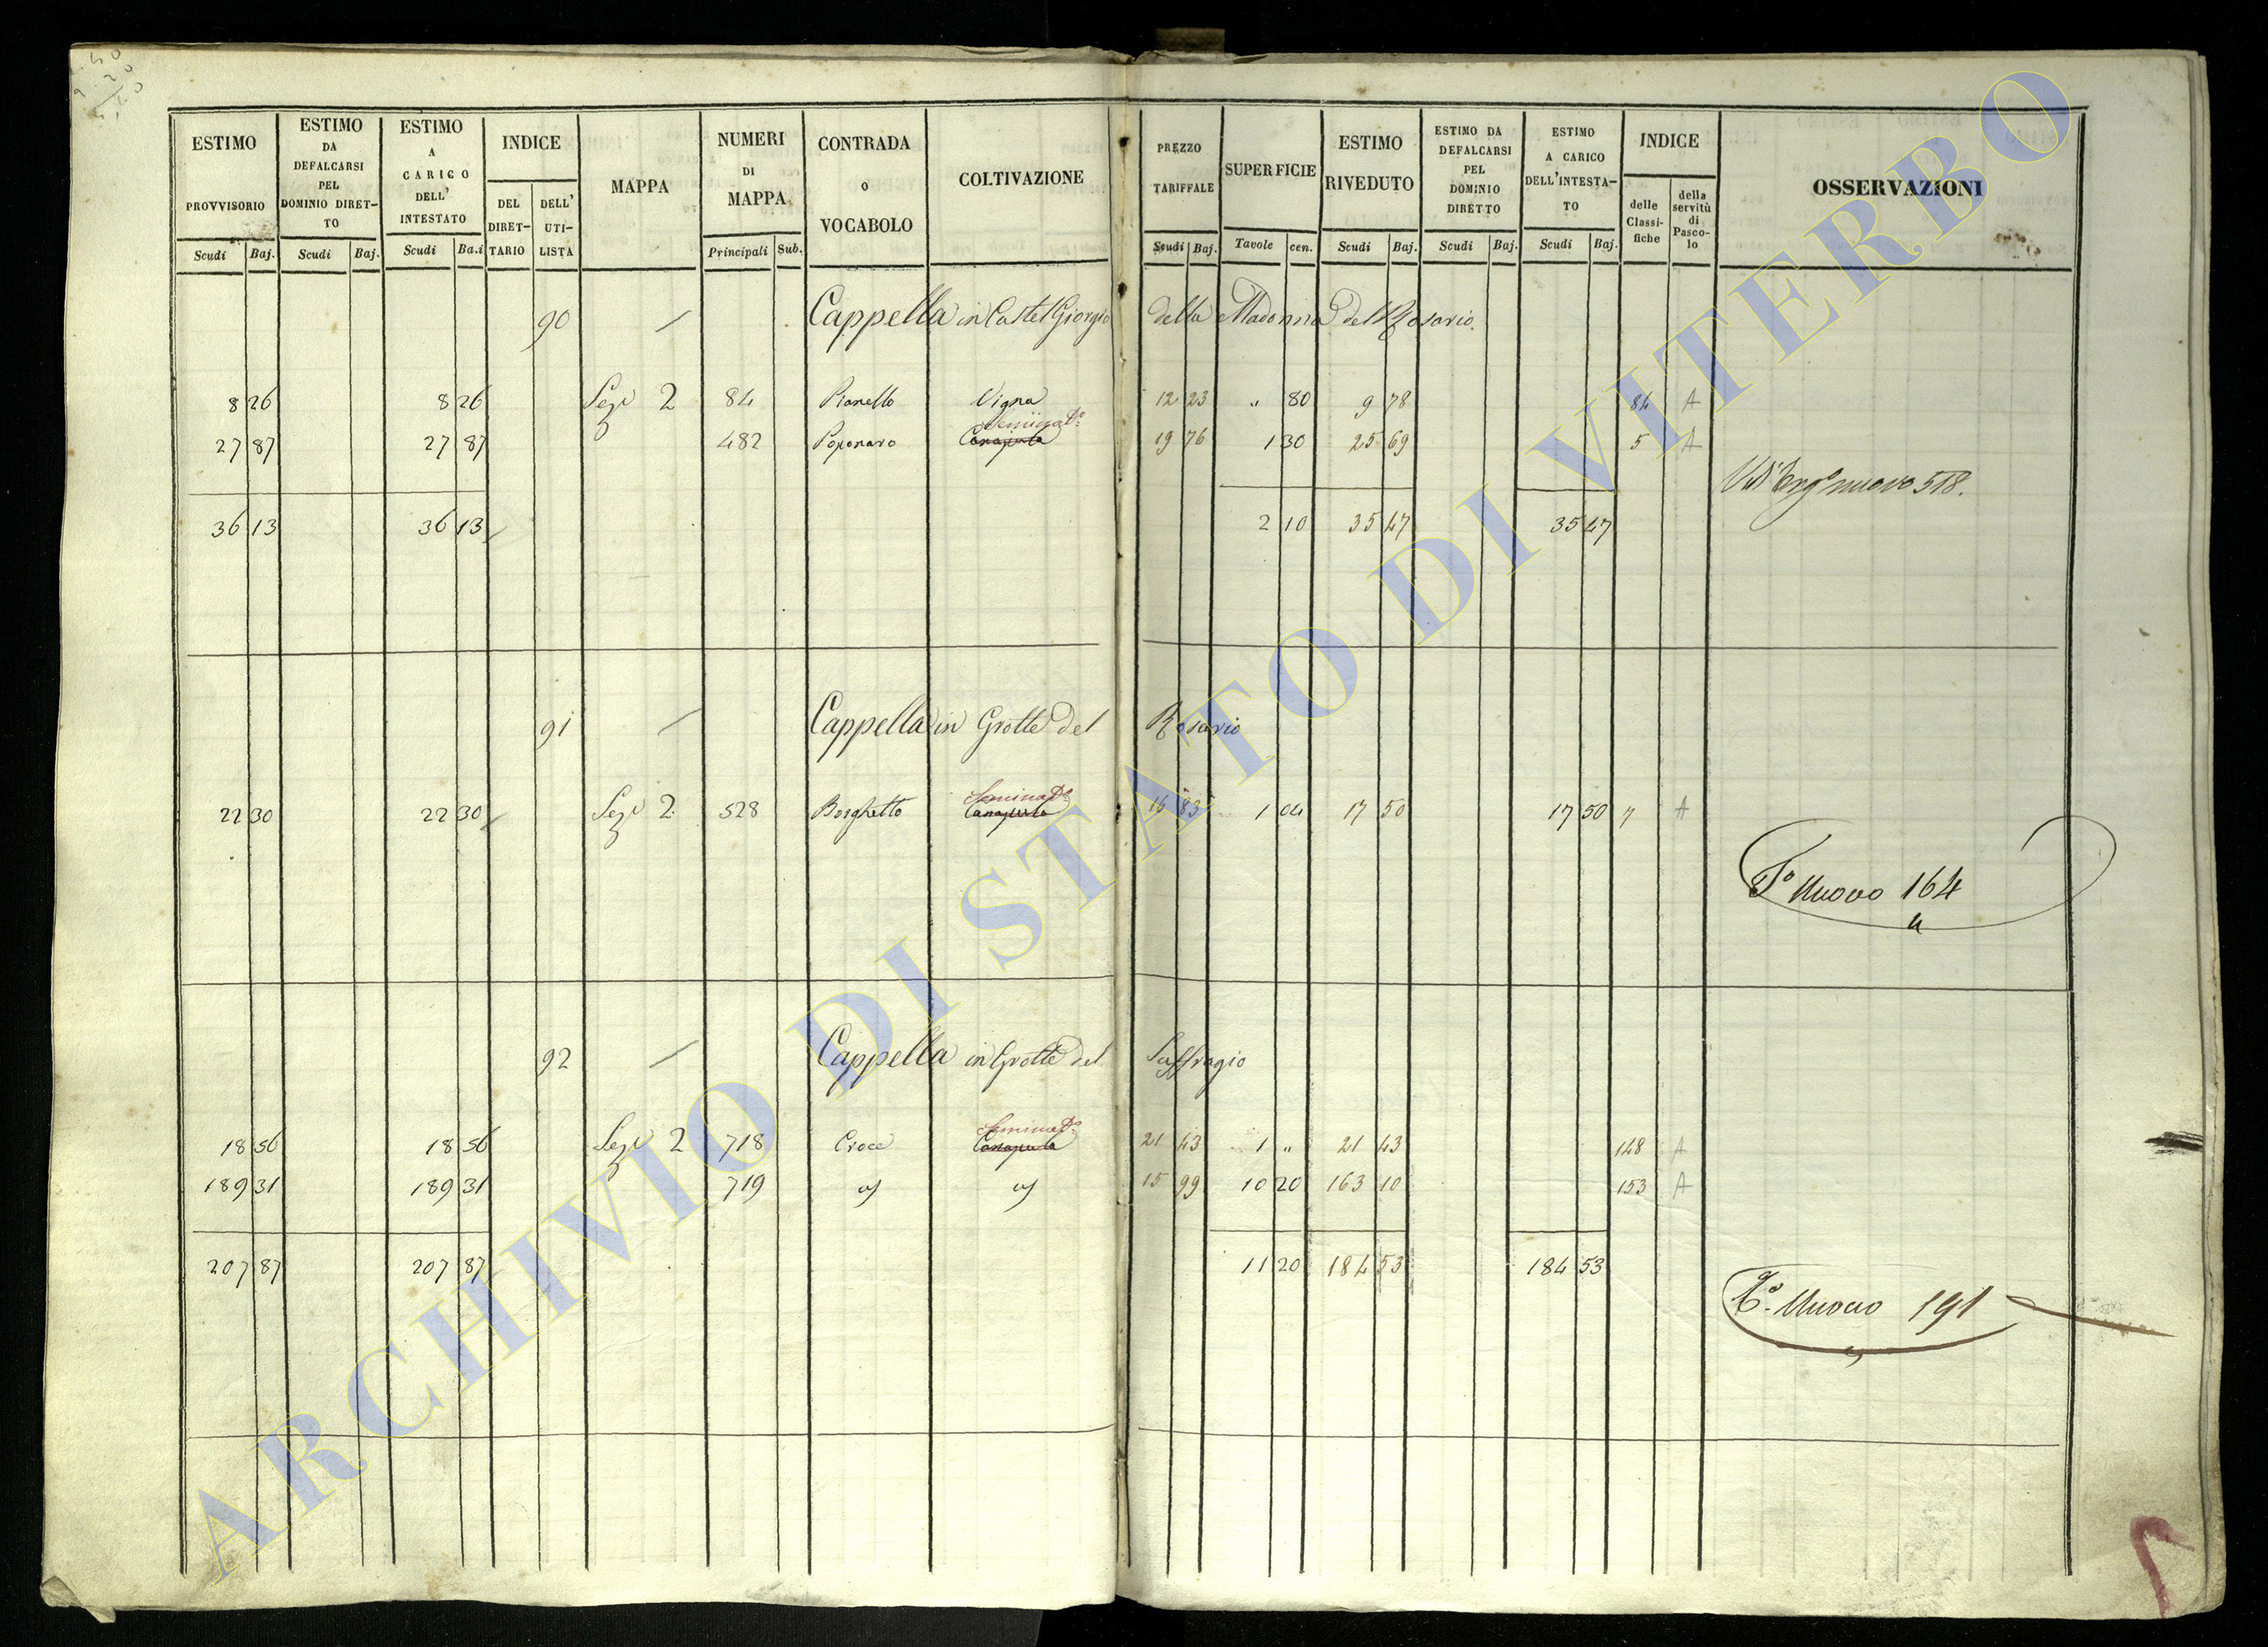 ESTIMO PROVVISORIO Scudi Baj.
ESTIMO DA DEFALCARSI PEL DOMINIO DIRET- TO Scudi Baj.
ESTIMO A CARICO DELL' INTESTATO Scudi Ba.i
INDICE DEL DIRET- TARIO DELL' UTI- LISTA
MAPPA
NUMERI DI MAPPA Principali Sub.
CONTRADA O VOCABOLO
COLTIVAZIONE
PREZZO TARIFFALE Scudi Baj.
SUPERFICIE Tavole cen.
ESTIMO RIVEDUTO Scudi Baj.
ESTIMO DA DEFALCARSI PEL DOMINIO DIRETTO Scudi Baj.
ESTIMO A CARICO DELL'INTESTA- TO Scudi Baj.
INDICE delle Classi- fiche della servitù di Pasco- lo
OSSERVAZIONI
90 Cappella in Castel Giorgio della Madonna del Rosario
8 26 8 26 Sez 2 84 Pianello Vigna 12 23 " 80 9 78 84 A
Seminato
27 87 27 87 482 Poponaro Canapula 19 76 1 30 25 69 5 A
nuovo 518.
36 13 36 13 2 10 35 47 35 47
91 Cappella in Grotte del Rosario
Seminato
22 30 22 30 Sez 2 528 Borghetto Canapula 16 83 1 04 17 50 17 50 7 A
Nuovo 164
92 Cappella in Grotte del Suffragio
Seminato
18 56 18 56 Sez 2 718 Croce Canapula 21 43 1 " 21 43 148 A
189 31 189 31 719 15 99 10 20 163 10 153 A
207 87 207 87 11 20 184 53 184 53
Nuovo 191
ARCHIVIO DI STATO DI VITERBO